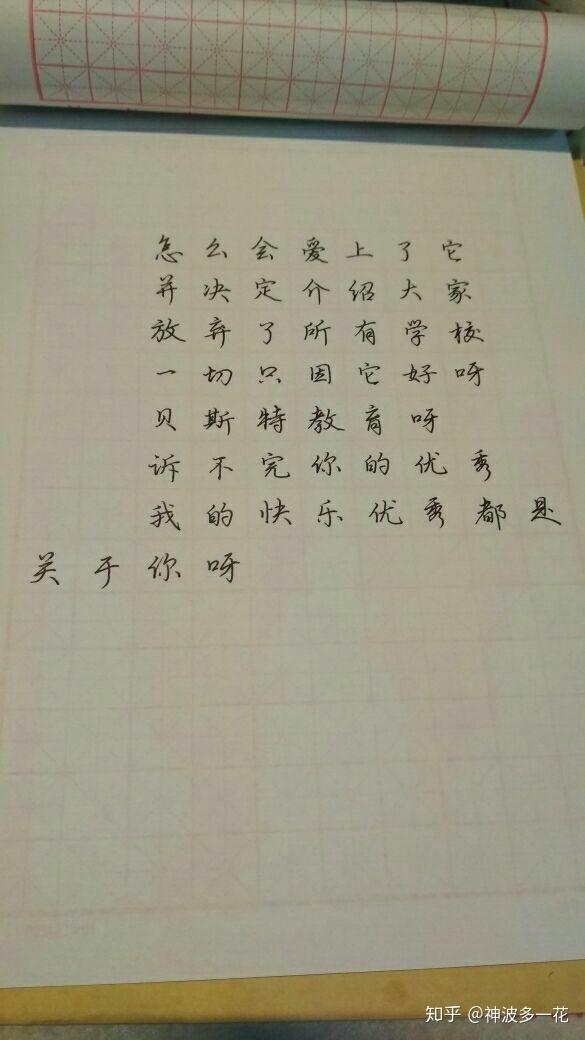 怎么会爱上了它
并决定介绍大家
放弃了所有学校
一切只因它好呀
贝斯特教育呀
诉不完你的优秀
我的快乐优秀都是
关于你呀
知乎 @神波多一花